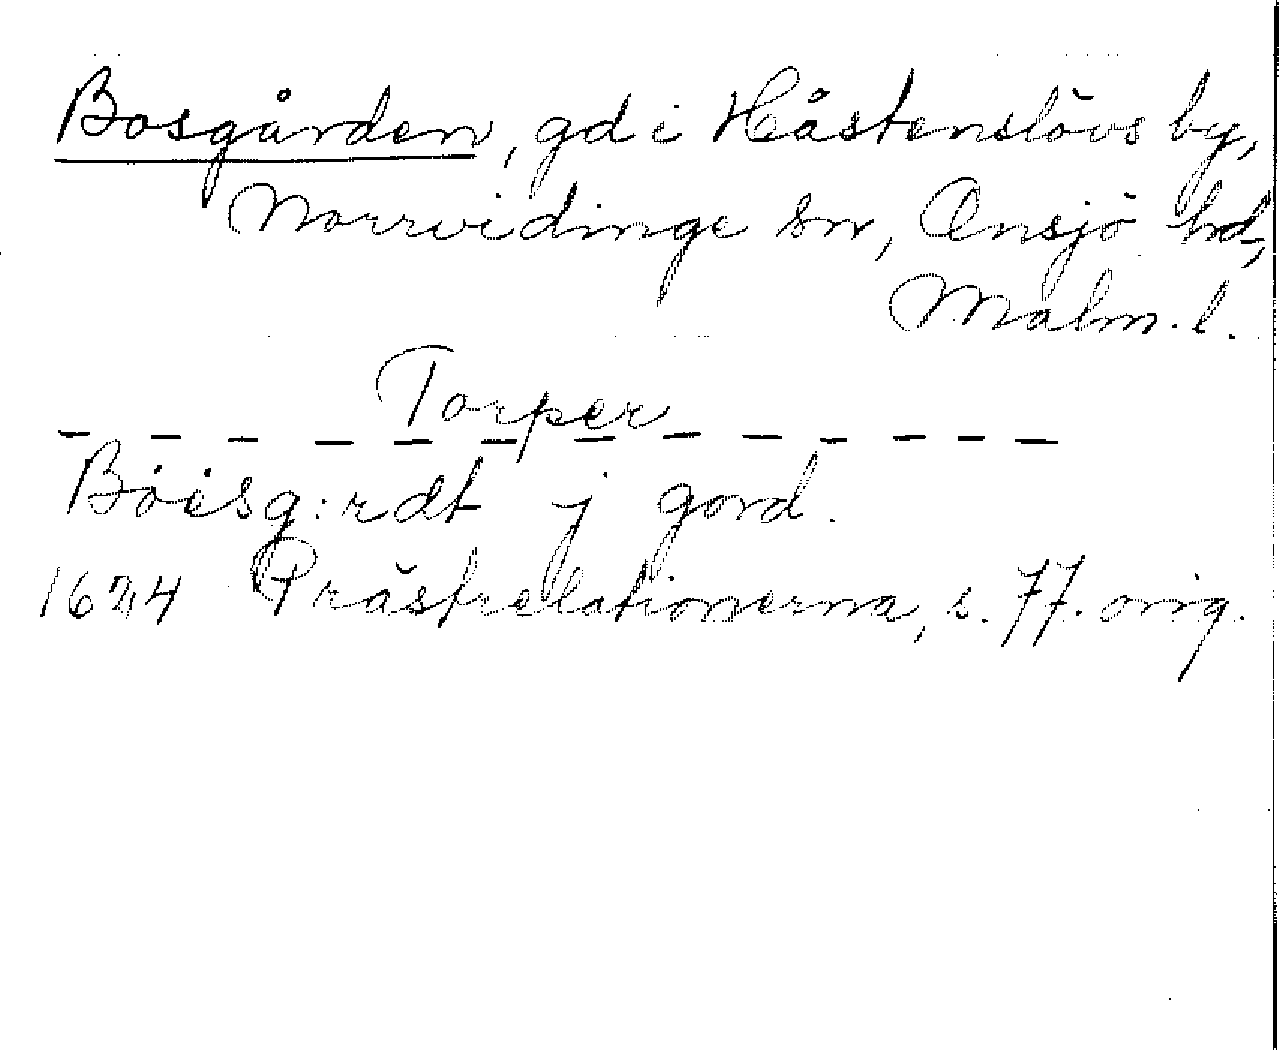 Bosgården, gd i Håstenslövs by,
Norrvidinge sn, Onsjö hd,
Malm. l.
Torper
— — — — — — — — — — — — —
Böisg:rdt j gord.
1624 Prästrelationerna, s. 77. orig.